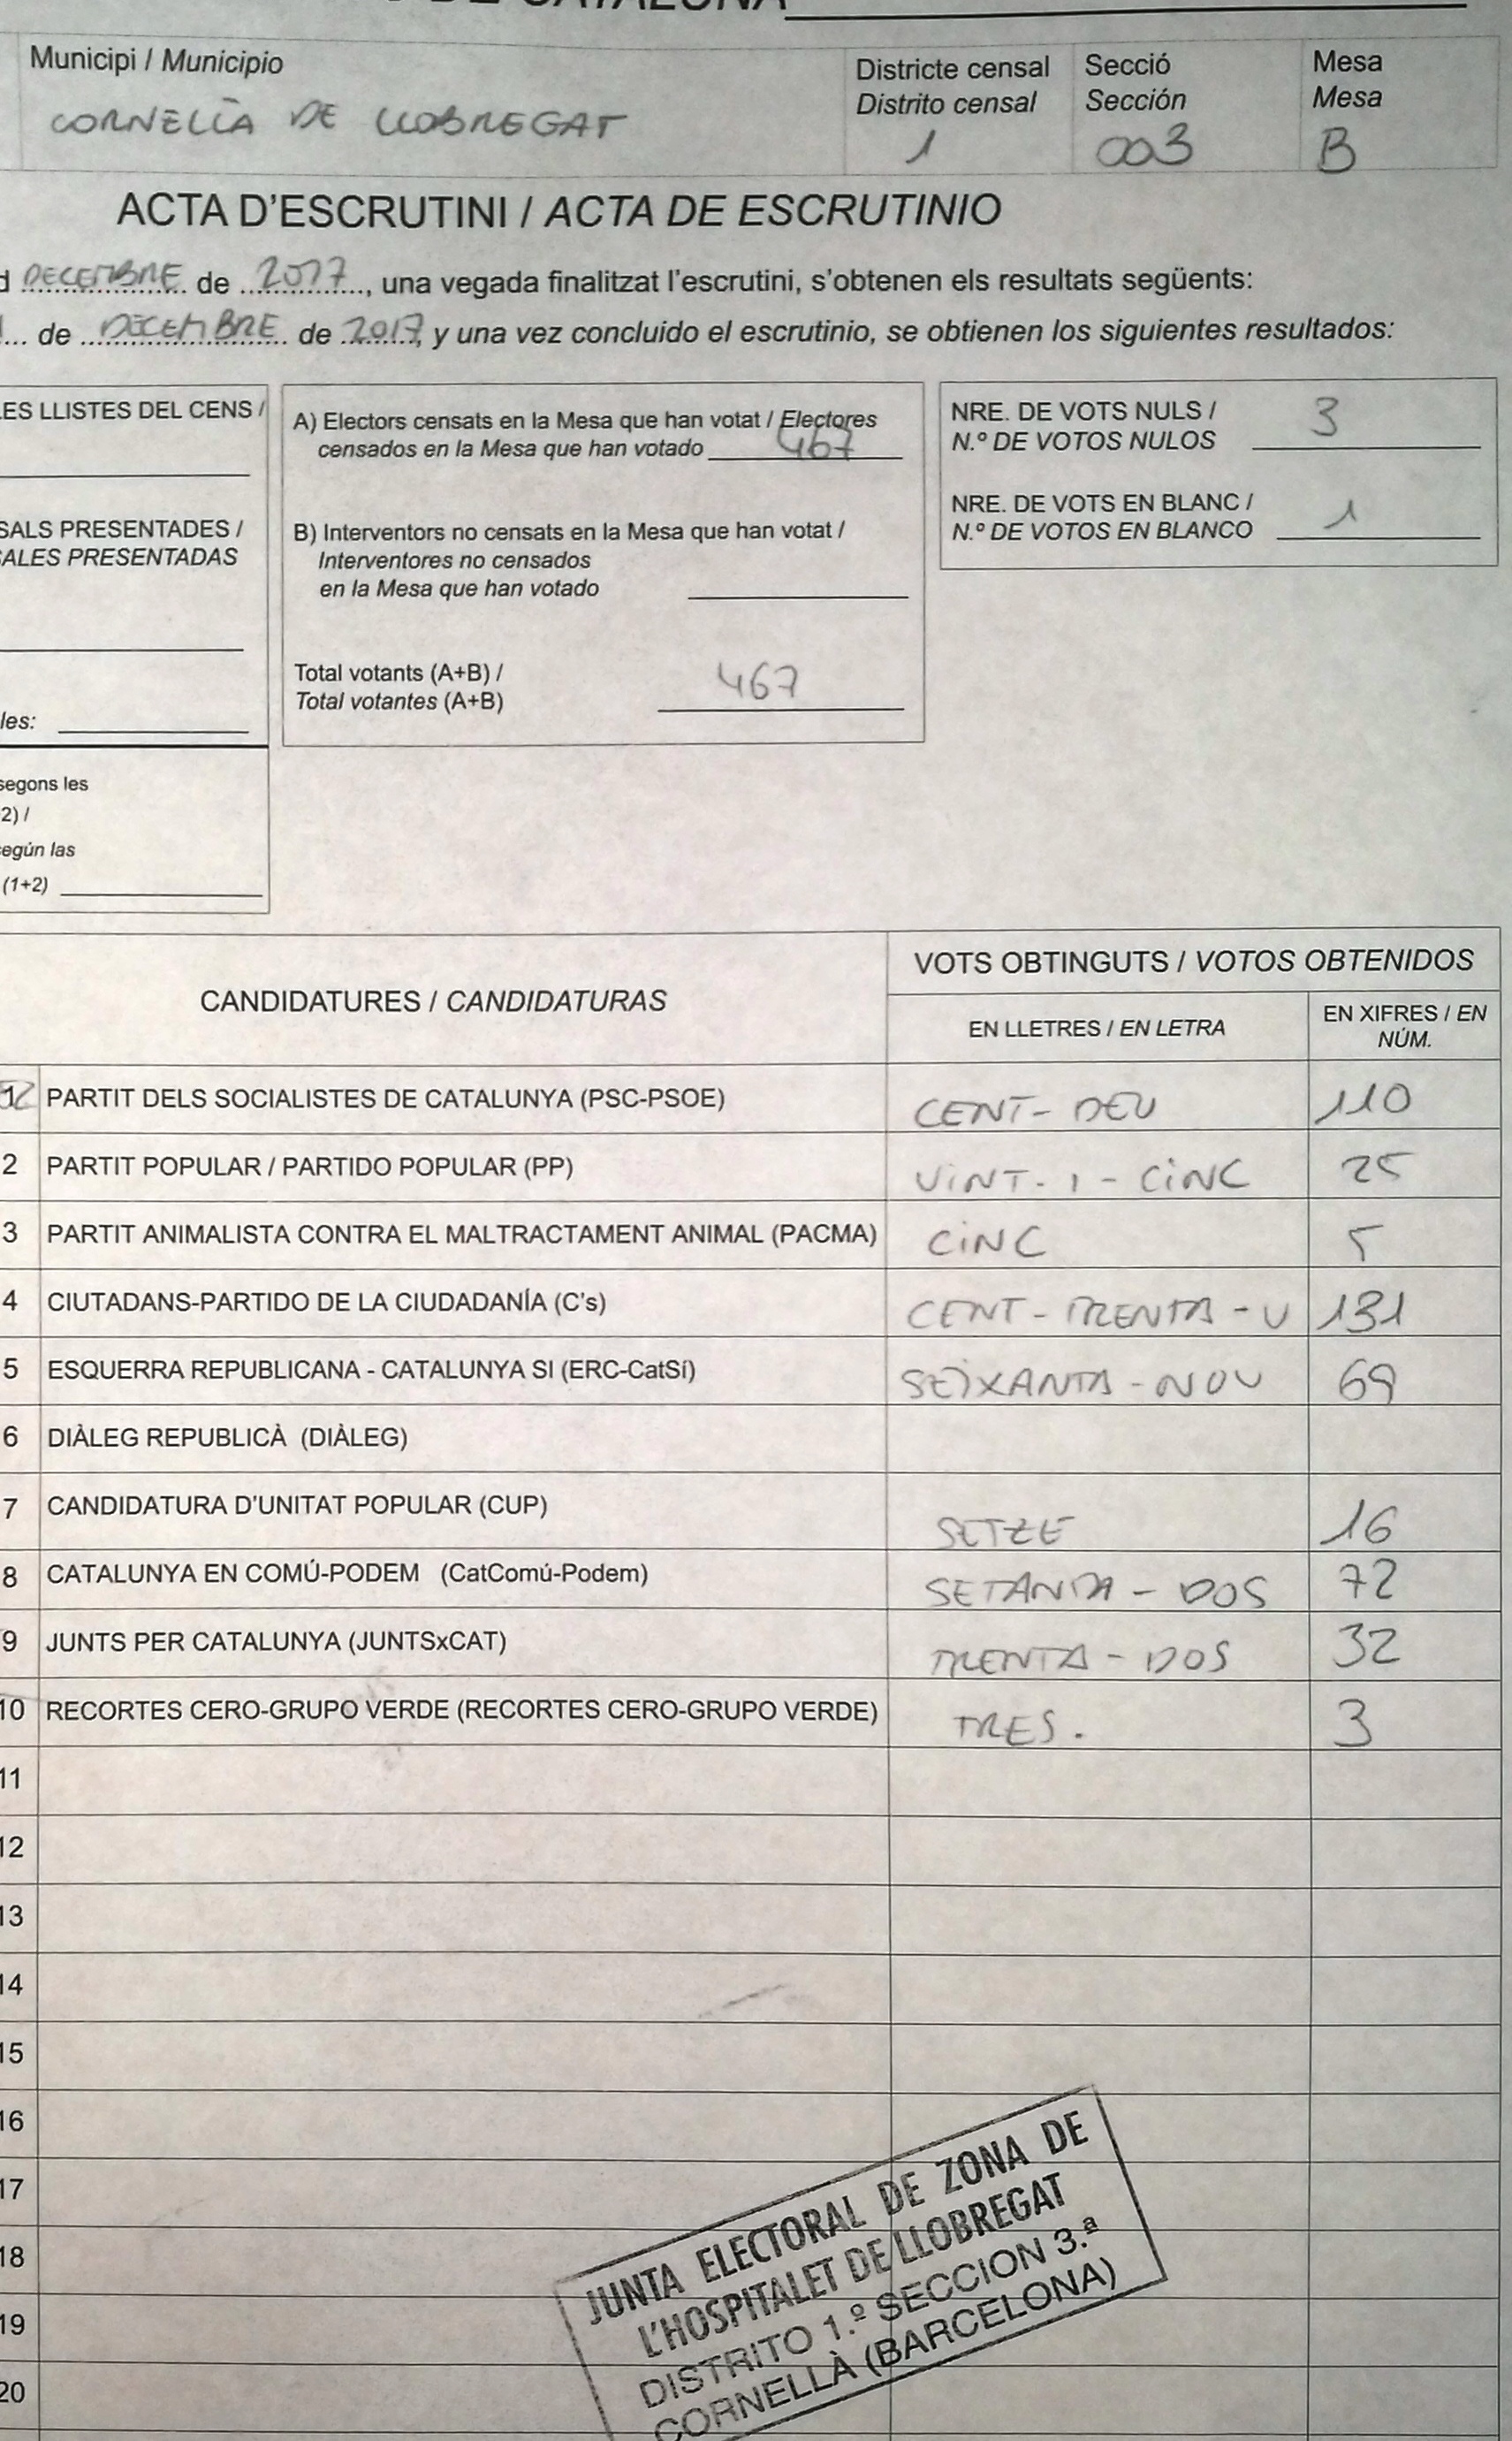 DE CATALUNA
Municipi / Municipio
CORNELLÀ DE LLOBREGAT
Districte censal
Distrito censal
1
Secció
Sección
003
Mesa
Mesa
B
ACTA D'ESCRUTINI / ACTA DE ESCRUTINIO
d DECEMBRE de 2017, una vegada finalitzat l'escrutini, s'obtenen els resultats següents:
... de DICEMBRE de 2017, y una vez concluido el escrutinio, se obtienen los siguientes resultados:
LES LLISTES DEL CENS /
SALS PRESENTADES /
SALES PRESENTADAS
les:
segons les
2) /
según las
(1+2)
A) Electors censats en la Mesa que han votat / Electores
censados en la Mesa que han votado 467
B) Interventors no censats en la Mesa que han votat /
Interventores no censados
en la Mesa que han votado
Total votants (A+B) /
Total votantes (A+B) 467
NRE. DE VOTS NULS /
N.º DE VOTOS NULOS 3
NRE. DE VOTS EN BLANC /
N.º DE VOTOS EN BLANCO 1
CANDIDATURES / CANDIDATURAS
VOTS OBTINGUTS / VOTOS OBTENIDOS
EN LLETRES / EN LETRA
EN XIFRES / EN
NÚM.
1 PARTIT DELS SOCIALISTES DE CATALUNYA (PSC-PSOE) CENT- DEU 110
2 PARTIT POPULAR / PARTIDO POPULAR (PP) VINT - I - CINC 25
3 PARTIT ANIMALISTA CONTRA EL MALTRACTAMENT ANIMAL (PACMA) CINC 5
4 CIUTADANS-PARTIDO DE LA CIUDADANÍA (C's) CENT - TRENTA - U 131
5 ESQUERRA REPUBLICANA - CATALUNYA SI (ERC-CatSí) SEIXANTA - NOU 69
6 DIÀLEG REPUBLICÀ (DIÀLEG)
7 CANDIDATURA D'UNITAT POPULAR (CUP) SETZE 16
8 CATALUNYA EN COMÚ-PODEM (CatComú-Podem) SETANTA - DOS 72
9 JUNTS PER CATALUNYA (JUNTSxCAT) TRENTA - DOS 32
10 RECORTES CERO-GRUPO VERDE (RECORTES CERO-GRUPO VERDE) TRES. 3
11
12
13
14
15
16
17
18
19
20
JUNTA ELECTORAL DE ZONA DE
L'HOSPITALET DE LLOBREGAT
DISTRITO 1.º SECCION 3.ª
CORNELLÀ (BARCELONA)